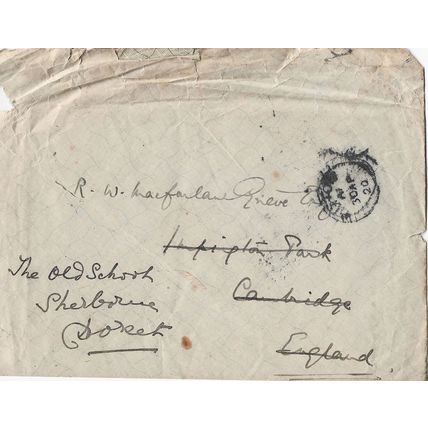 R. W. Macfarlane Grieve Esq
Impington Park
Cambridge
England
The Old School
Sherborne
Dorset
30 AP
20